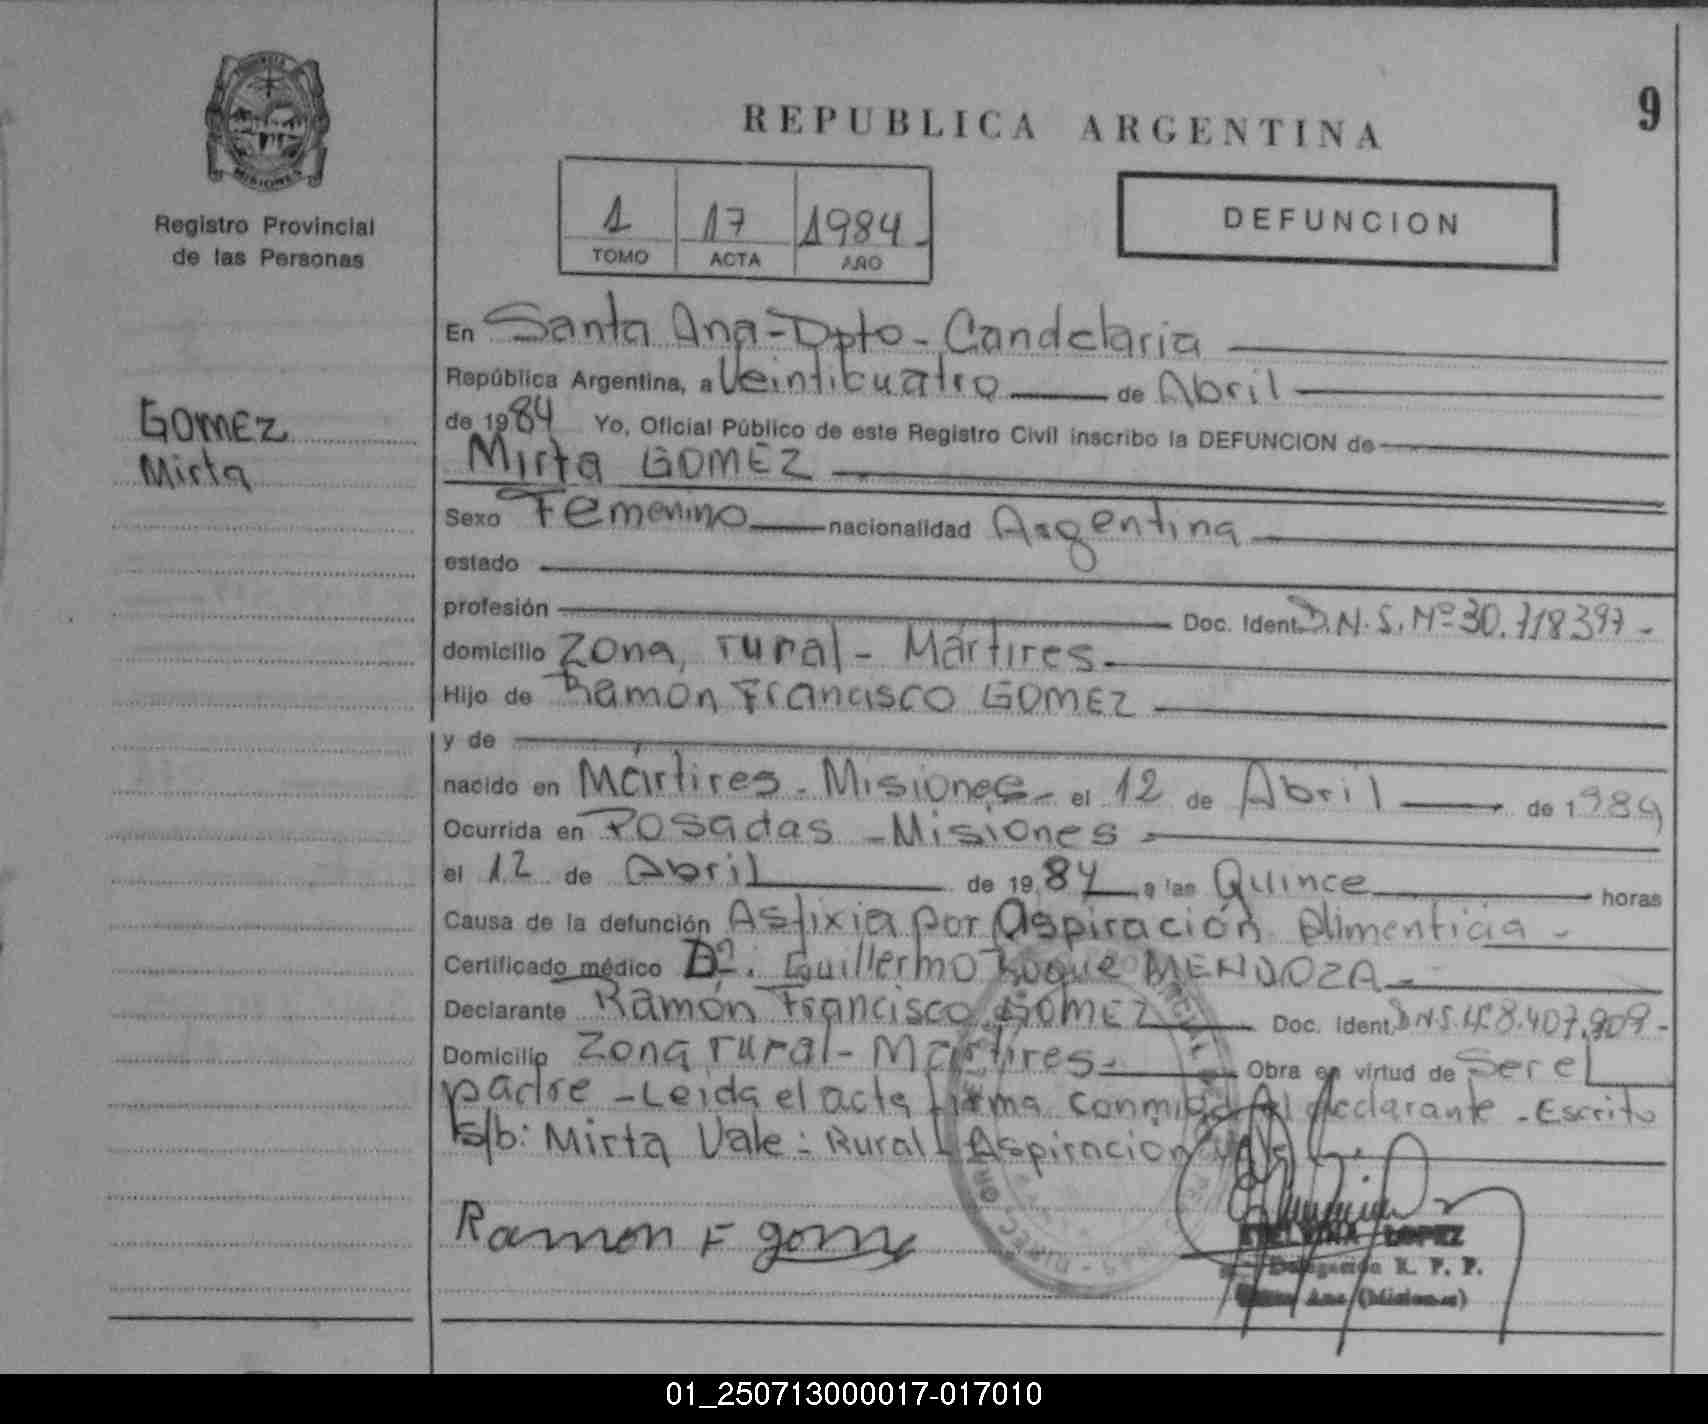 REPUBLICA ARGENTINA
9
MISIONES
Registro Provincial
de las Personas
1 17 1984-
TOMO ACTA AÑO
DEFUNCION
GOMEZ
Mirta
En Santa Ana-Dpto-Candelaria
República Argentina, a Veinticuatro de Abril
de 1984 Yo, Oficial Público de este Registro Civil inscribo la DEFUNCION de
Mirta GOMEZ
Sexo Femenino nacionalidad Argentina
estado
profesión Doc. Ident. D.N.S. Nº 30.718397-
domicilio Zona, rural- Mártires
Hijo de Ramón Francisco GOMEZ
y de
nacido en Mártires - Misiones- el 12 de Abril de 1984
Ocurrida en Posadas -Misiones
el 12 de Abril de 1984 a las Quince horas
Causa de la defunción Asfixia por Aspiración Alimenticia -
Certificado médico Dº. Guillermo Roque MENDOZA-
Declarante Ramón Francisco GOMEZ Doc. Ident. D.N.S. 8.407.909-
Domicilio Zona rural- Mártires- Obra en virtud de Ser el
padre -Leída el acta firma conmigo el declarante -Escrito
s/b: Mirta Vale: Rural- Aspiración Vale
Ramon F gome
LOPEZ
Delegación R. P. P.
Ana (Misiones)
01_250713000017-017010